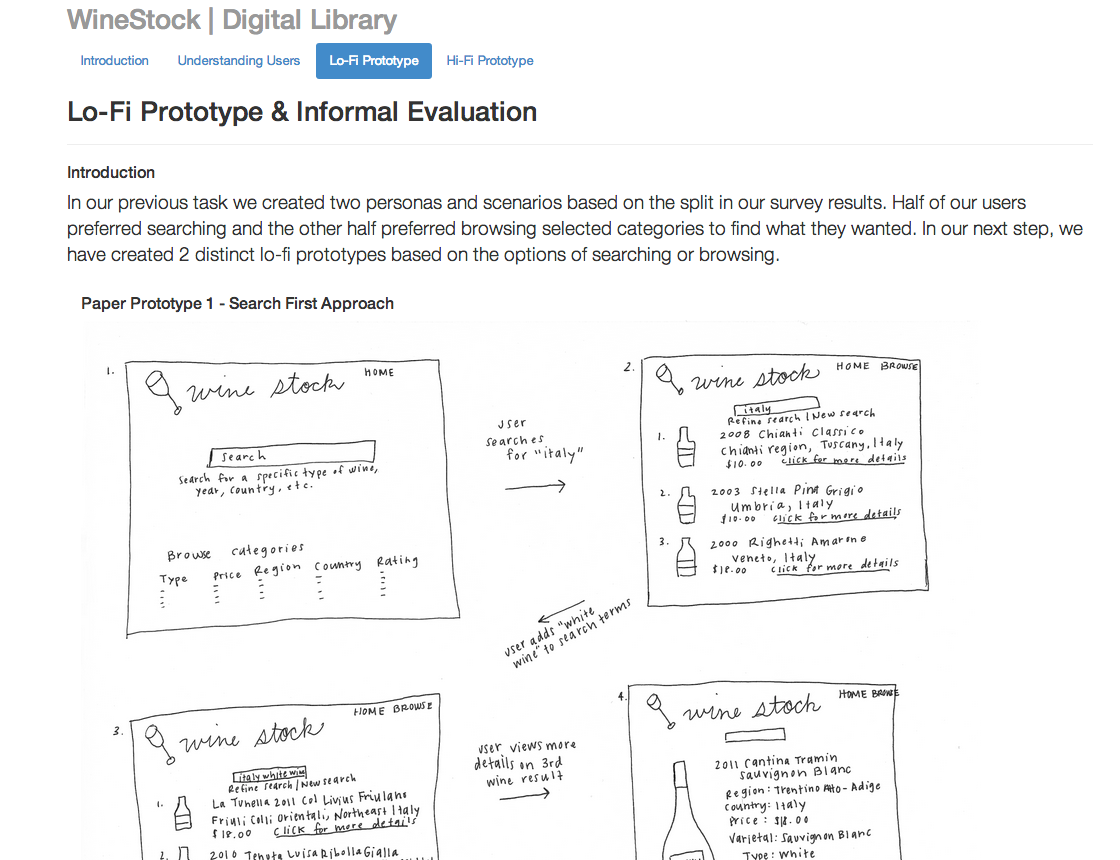 WineStock | Digital Library
Introduction Understanding Users Lo-Fi Prototype Hi-Fi Prototype
Lo-Fi Prototype & Informal Evaluation
Introduction
In our previous task we created two personas and scenarios based on the split in our survey results. Half of our users
preferred searching and the other half preferred browsing selected categories to find what they wanted. In our next step, we
have created 2 distinct lo-fi prototypes based on the options of searching or browsing.
Paper Prototype 1 - Search First Approach
1.
wine stock
HOME
search
Search for a specific type of wine,
year, country, etc.
Browse categories
Type Price Region Country Rating
user
searches
for "italy"
2.
wine stock
HOME BROWSE
italy
Refine search | New search
1. 2008 Chianti Classico
Chianti region, Tuscany, Italy
$10.00 click for more details
2. 2003 Stella Pinot Grigio
Umbria, Italy
$10.00 click for more details
3. 2000 Righetti Amarone
Veneto, Italy
$18.00 click for more details
user adds "white
wine" to search terms
3.
wine stock
HOME BROWSE
italy white wine
Refine search | New search
1. La Tunella 2011 Col Livius Friulano
Friuli Colli Orientali, Northeast Italy
$18.00 click for more details
2. 2010 Tenuta Luisa Ribolla Gialla
user views more
details on 3rd
wine result
4.
wine stock
HOME BROWSE
2011 Cantina Tramin
Sauvignon Blanc
Region: Trentino Alto-Adige
Country: Italy
Price: $18.00
Varietal: Sauvignon Blanc
Type: White